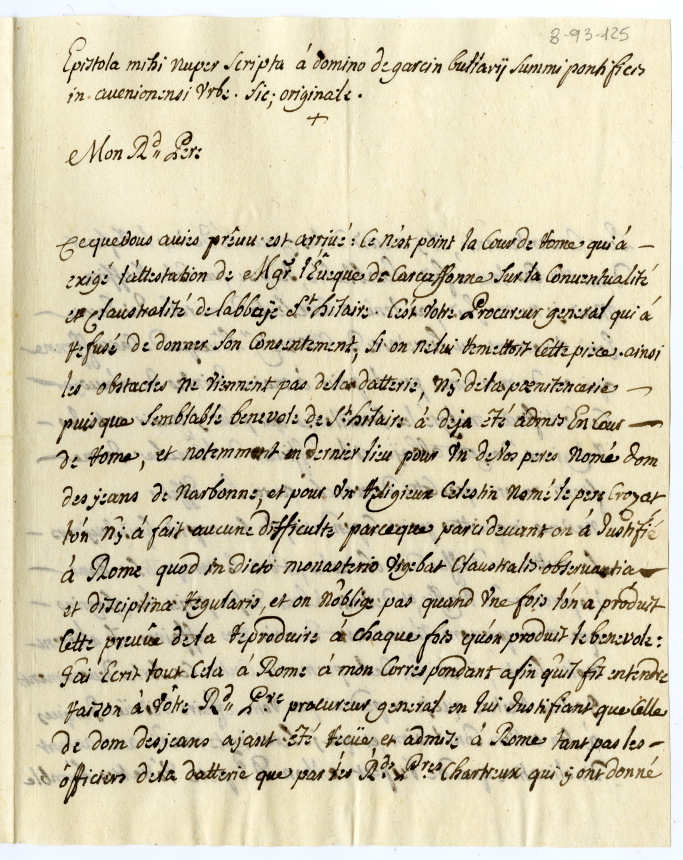 8-93-125
Epistola mihi nuper scripta á domino de garcin bullarij summi pontificis
in avenionensi Vrbe. sic; originale.
+
Mon Rd Pere
Ce que vous aviés prêuu est arriué: Ce n'est point la Cour de rome qui á
exigé l'attestation de Mgr l'Êueque de Carcassonne sur la Conuentualité
et Claustralité de l'abbaje St hilaire. C'est Votre Procureur general qui á
refusé de donner son Consentement, si on ne lui remettoit Cette piéce. ainsi
les obstacles ne viennent pas de la datterie, ny de la pœnitencerie
puisque semblable benevole de St hilaire á deja été admis En Cour
de rome, et notemment en dernier lieu pour Vn de Vos peres Nomé dom
desjeans de Narbonne, et pour Vn Religieux Celestin Nomé le pere Crozat
l'on n'y á fait aucune difficulté parceque par cidevant on á Justifié
à Rome quod in dicto monasterio Vigebat Claustralis observantia
et disciplina regularis, et on N'oblige pas quand Vne fois l'on a produit
Cette preuûe de la reproduire á chaque fois qu'on produit le benevole:
J'ai Ecrit tout Cela á Rome á mon Correspondant afin qu'il fit entendre
raison á Vôtre Rd Pre procureur general en lui Justifiant que Celle
de dom desjeans ajant été reçüe et admise à Rome tant par les
ôfficiers de la datterie que par les Rds Pres Chartreux qui y ont donné